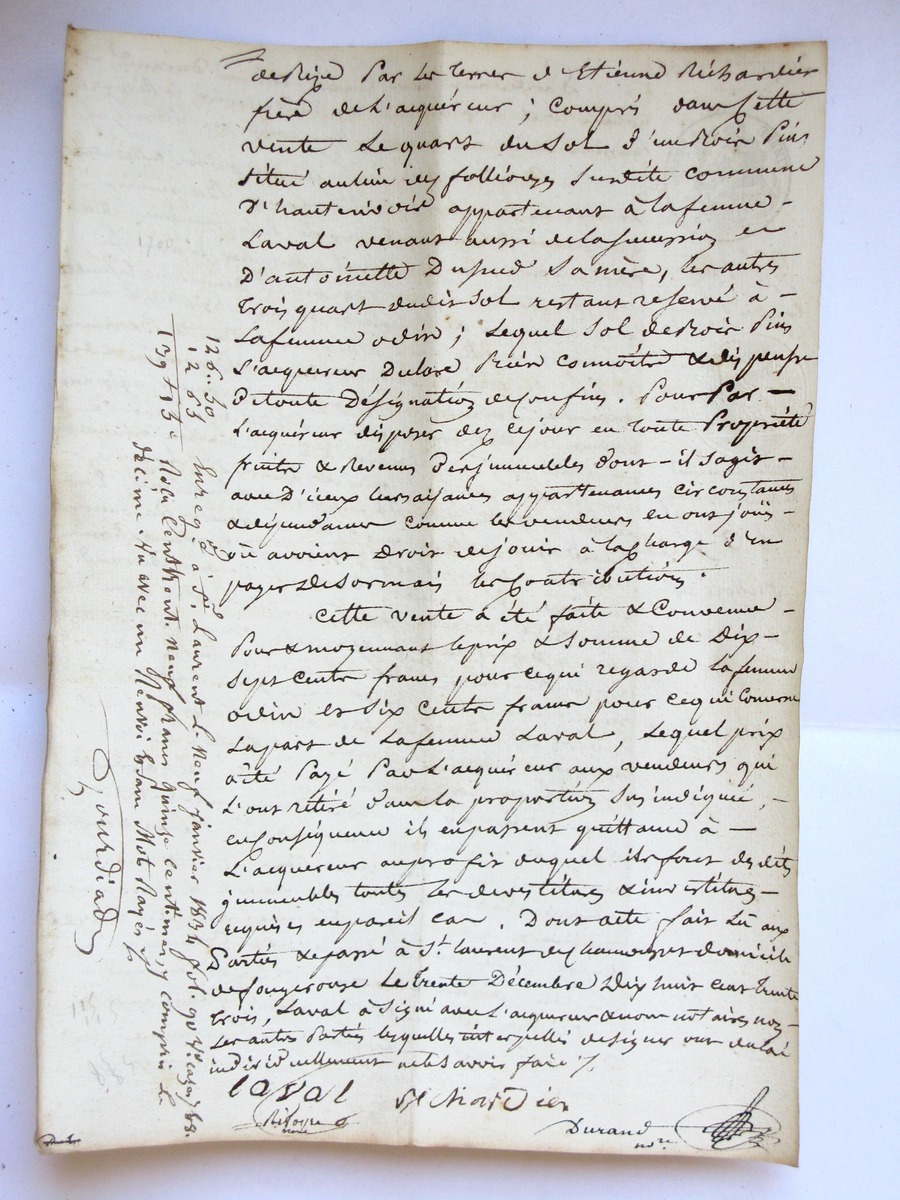 de Bize Par les terres d'Etienne Richardier
frère de L'acquéreur ; compris dans Cette
vente Le quart du Sol d'un Bois Pins
Situé au lieu des folliouzes Susdite commune
D'hauterivoire appartenant à la femme -
Laval venant aussi de la succession
D'antoinette Sa mère, les autres
trois quart dudit Sol restant reservé à -
La femme odin ; Lequel Sol de Bois Pins
L'acquereur Declare Bien connoitre & dispense
De toute Désignation de Confins . Pour Par -
L'acquéreur disposer dez ce jour en toute Propriété
fruits & Revenus Des jmmeubles dont - il s'agit -
avec D'iceux leurs aisances appartenances circonstances
& dépendances comme les vendeurs en ont jouis -
ou avoient Droit de jouir à la Charge d'en
payer Désormais les Contributions .
Cette vente à été faite & Convenue -
Pour & moyennant le prix & Somme de Dix -
Sept Cents francs pour ce qui regarde la femme
odin et Six Cents francs pour ce qui Concerne
La part de La femme Laval, Lequel prix
à été Payé Par L'acquéreur aux vendeurs qui
L'ont retiré dans la proportion sus indiquée, -
en Conséquence ils en passent quittance à -
L'acquereur au profit duquel ils font desdits
jmmeubles toutes les devestitures & investitures -
requises en pareil cas . Dont acte fait Lu aux
Parties & passé à St. Laurent de Chamousset domicile
de fougerouse Le trente Décembre Dix huit cent trente
trois, Laval à Signé avec L'acquereur & nous notaires non -
Les autres Parties lesquelles interpellés de signer ont déclaré
individuellement ne le savoir faire ./.
laval
Richardier
Durand
nore
126..50
12 65
139 + 15 c
Enregé à St. Laurent le Neuf janvier 1834 fol. 90 Vo. cases 7 & 8.
Reçu Cent trent. Neuf francs quinze centimes, y compris le
décime. Vu avec un Renvoi & dans Mots Rayés
Gourdiad